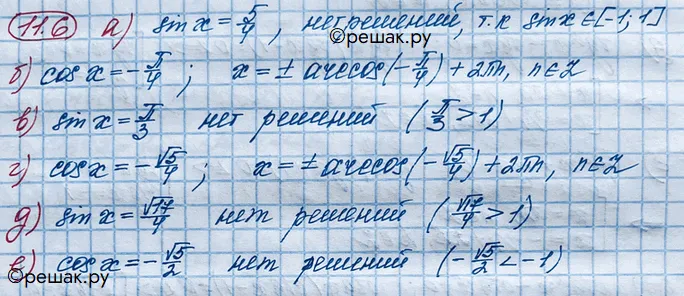 11.6 а) sin x = 5/4, нет решений, т.к sin x ∈ [-1; 1]
©решак.ру
б) cos x = -π/4; x = ± arccos(-π/4) + 2πn, n ∈ Z
в) sin x = π/3 нет решений (π/3 > 1)
г) cos x = -√5/4; x = ± arccos(-√5/4) + 2πn, n ∈ Z
д) sin x = √17/4 нет решений (√17/4 > 1)
е) cos x = -√5/2 нет решений (-√5/2 < -1)
©решак.ру